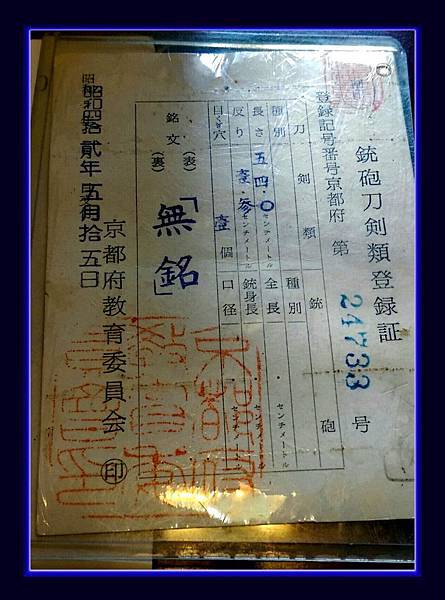 銃砲刀剣類登録証
登録記号番号京都府 第 24733 号
刀剣類
銃砲
種別
種別
長さ 五四.〇 センチメートル
全長 センチメートル
反り 壹.参 センチメートル
銃身長 センチメートル
目くぎ穴 壹個
口径 センチメートル
銘文
(表)「無銘」
(裏)
昭和四拾貳年五月拾五日
京都府教育委員会 印